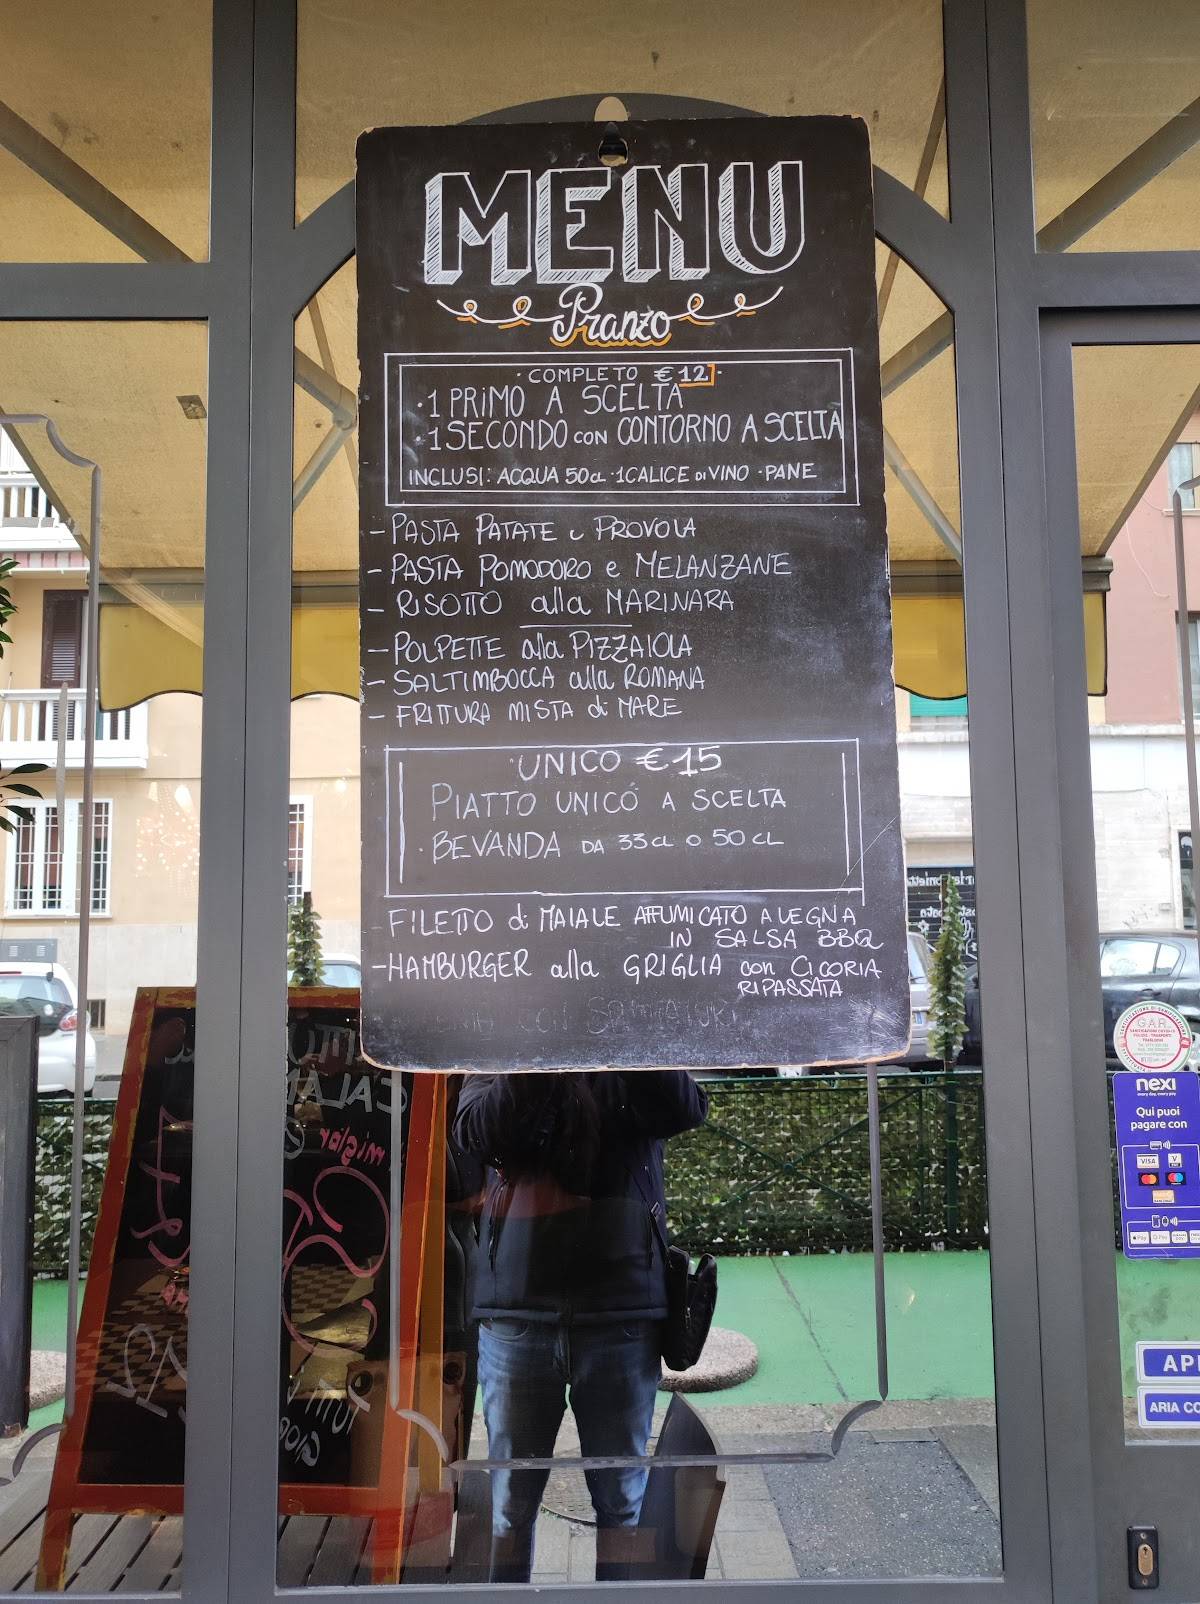 MENU
Pranzo
· COMPLETO €12 ·
· 1 PRIMO A SCELTA
· 1 SECONDO CON CONTORNO A SCELTA
INCLUSI: ACQUA 50CL · 1 CALICE DI VINO · PANE
- PASTA PATATE e PROVOLA
- PASTA POMODORO e MELANZANE
- RISOTTO alla MARINARA
- POLPETTE alla PIZZAIOLA
- SALTIMBOCCA alla ROMANA
- FRITTURA MISTA di MARE
UNICO €15
PIATTO UNICO A SCELTA
· BEVANDA DA 33CL O 50CL
- FILETTO di MAIALE AFFUMICATO A LEGNA
IN SALSA BBQ
- HAMBURGER alla GRIGLIA con CICORIA
RIPASSATA
G.A.R.
nexi
every day, every pay
Qui puoi
pagare con
VISA
V PAY
Pay
G Pay
API
ARIA CO